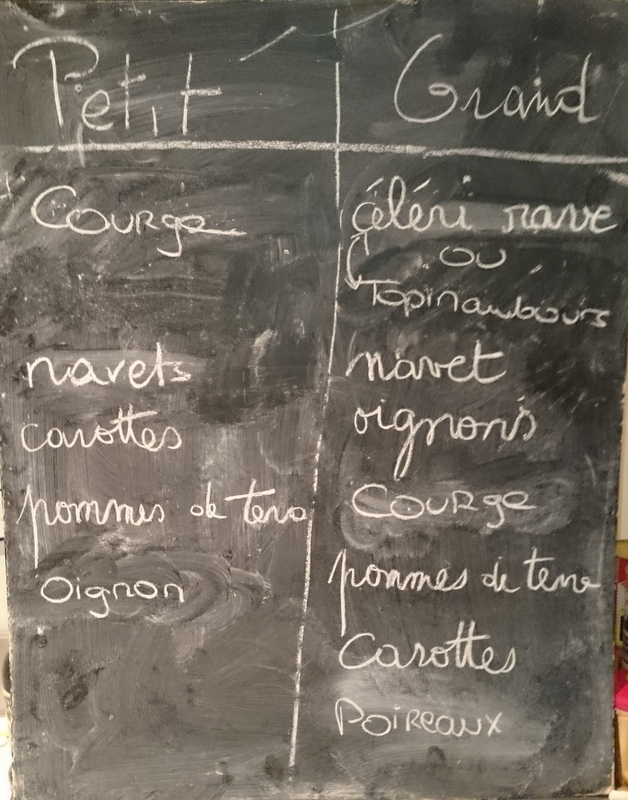 Petit
Courge
navets
carottes
pommes de terre
Oignon
Grand
céléri rave
ou
Topinambours
navet
oignons
Courge
pommes de terre
Carottes
Poireaux